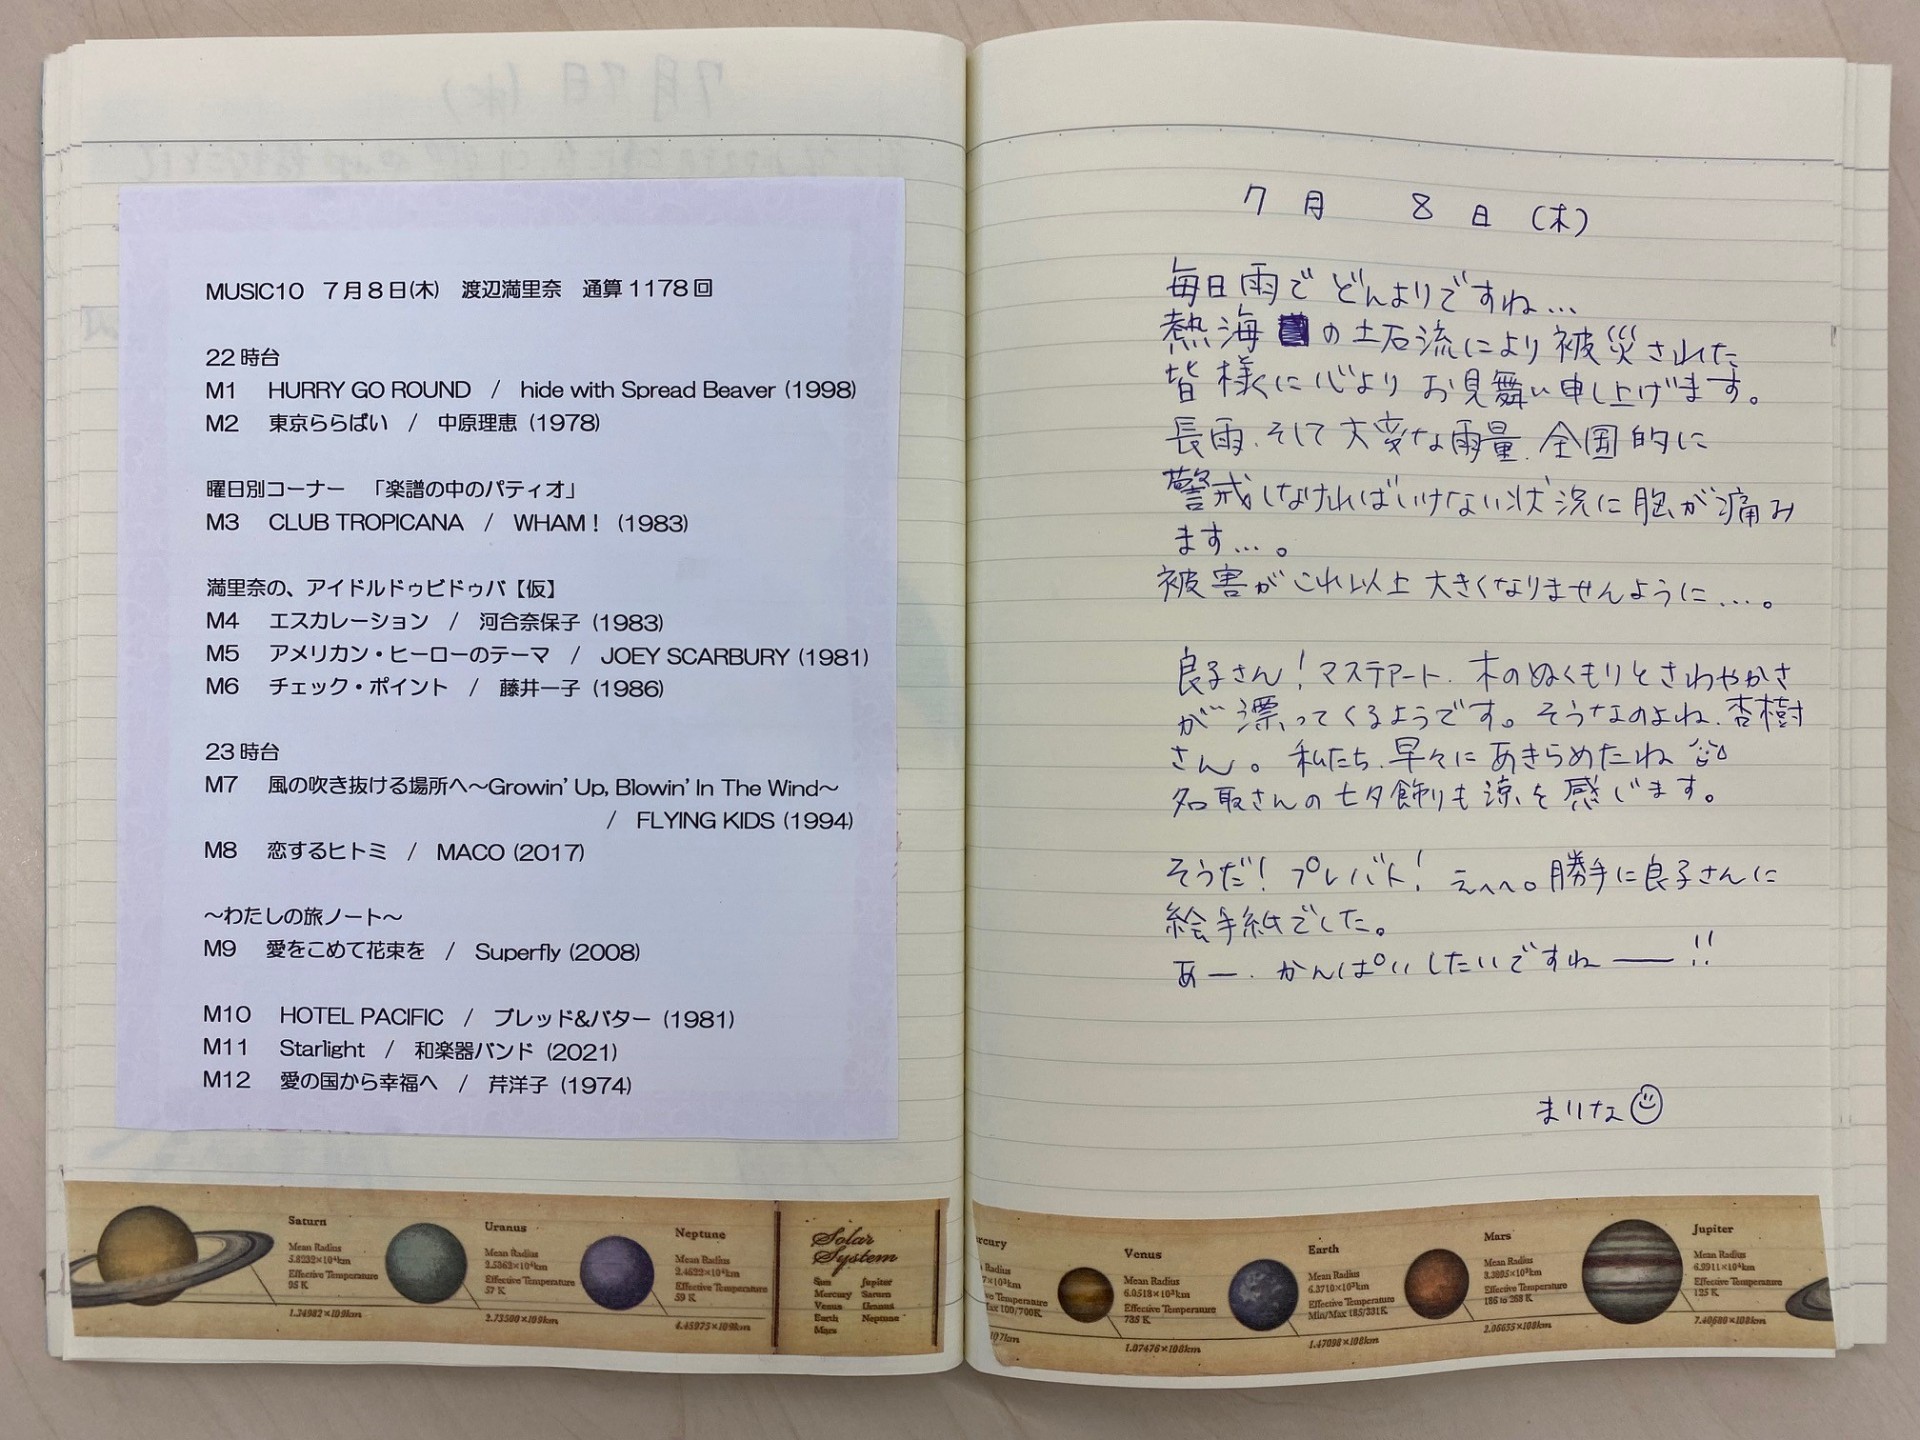 MUSIC10 7月8日(木) 渡辺満里奈 通算1178回
22時台
M1 HURRY GO ROUND / hide with Spread Beaver (1998)
M2 東京ららばい / 中原理恵 (1978)
曜日別コーナー 「楽譜の中のパティオ」
M3 CLUB TROPICANA / WHAM! (1983)
満里奈の、アイドルドゥビドゥバ【仮】
M4 エスカレーション / 河合奈保子 (1983)
M5 アメリカン・ヒーローのテーマ / JOEY SCARBURY (1981)
M6 チェック・ポイント / 藤井一子 (1986)
23時台
M7 風の吹き抜ける場所へ～Growin' Up, Blowin' In The Wind～
/ FLYING KIDS (1994)
M8 恋するヒトミ / MACO (2017)
～わたしの旅ノート～
M9 愛をこめて花束を / Superfly (2008)
M10 HOTEL PACIFIC / ブレッド&バター (1981)
M11 Starlight / 和楽器バンド (2021)
M12 愛の国から幸福へ / 芹洋子 (1974)
7月 8日 (木)
毎日雨で どんよりですね…
熱海の土石流により被災された
皆様に心より お見舞い申し上げます。
長雨、そして大変な雨量、全国的に
警戒しなければいけない状況に胸が痛み
ます…。
被害がこれ以上 大きくなりませんように…。
良子さん!マステアート、木のぬくもりとさわやかさ
が漂ってくるようです。そうなのよね、杏樹
さん。私たち、早々にあきらめたね
名取さんの七夕飾りも涼を感じます。
そうだ!プレバト!えへへ。勝手に良子さんに
絵手紙でした。
あー、かんぱいしたいですねー!!
まりな
Saturn
Mean Radius
5.8232×10⁴km
Effective Temperature
95 K
1.34982×109km
Uranus
Mean Radius
2.5362×10⁴km
Effective Temperature
57 K
2.73500×109km
Neptune
Mean Radius
2.4622×10⁴km
Effective Temperature
59 K
4.45975×109km
Solar
System
Sun Jupiter
Mercury Saturn
Venus Uranus
Earth Neptune
Mars
Venus
Mean Radius
6.0518×10³km
Effective Temperature
735 K
1.07476×108km
Earth
Mean Radius
6.3710×10³km
Effective Temperature
Min/Max 185/331K
1.47098×108km
Mars
Mean Radius
3.3895×10³km
Effective Temperature
186 to 268 K
2.06655×108km
Jupiter
Mean Radius
6.9911×10⁴km
Effective Temperature
125 K
7.40680×108km